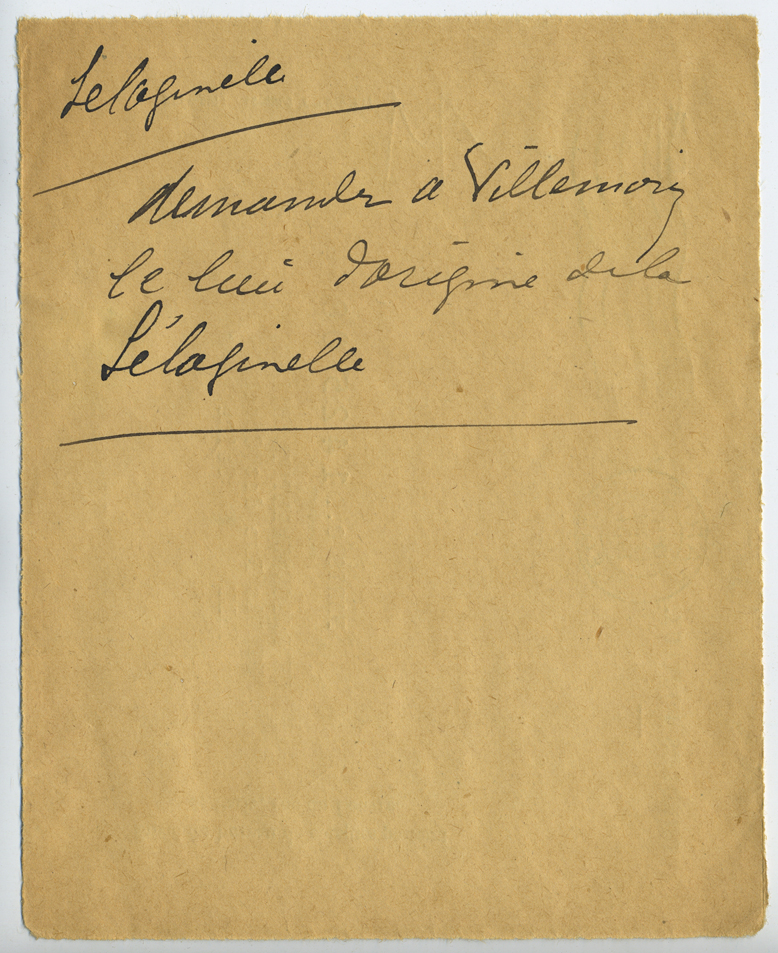 Selaginelle
demander a Villemorin
le lieu d'origine de la
Sélaginelle